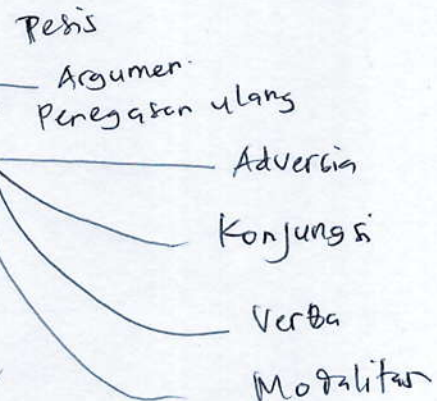 Pesis
Argumen.
Penegasan ulang
Adverbia
Konjungsi
Verba
Modalitas